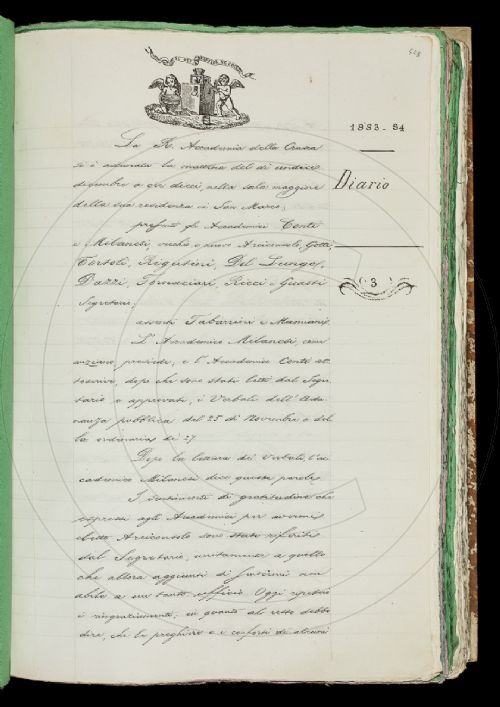 528
1883-84
Diario
3
La R. Accademia della Crusca
si è adunata la mattina del dì undici
dicembre a ore dieci, nella sala maggiore
della sua residenza in San Marco;
presenti gli Accademici Conti
e Milanesi, vecchio e nuovo Arciconsolo, Gotti,
Tortoli, Rigutini, Del Lungo,
Dazzi, Tommaciari, Ricci e Guasti
Segretario,
assenti Tabarrini e Mamiani.
L'Accademico Milanesi, com'
anziano, presiede, e l'Accademico Conti
toscrive, dopo che sono stati letti dal Segre
tario e approvati, i Verbali dell'Adu
nanza pubblica del 25 di Novembre e del
la ordinaria de' 27.
Dopo la lettura dei Verbali, l'Ac
cademico Milanesi dice queste parole:
I sentimenti di gratitudine che
espressi agli Accademici per avermi
eletto Arciconsolo sono stati riferiti
dal Segretario, unitamente a quello
che allora aggiunsi di sentirmi
abile a un tanto ufficio. Oggi ripeto
i ringraziamenti; in quanto al resto debbo
dire, che le preghiere e i conforti di alcuni